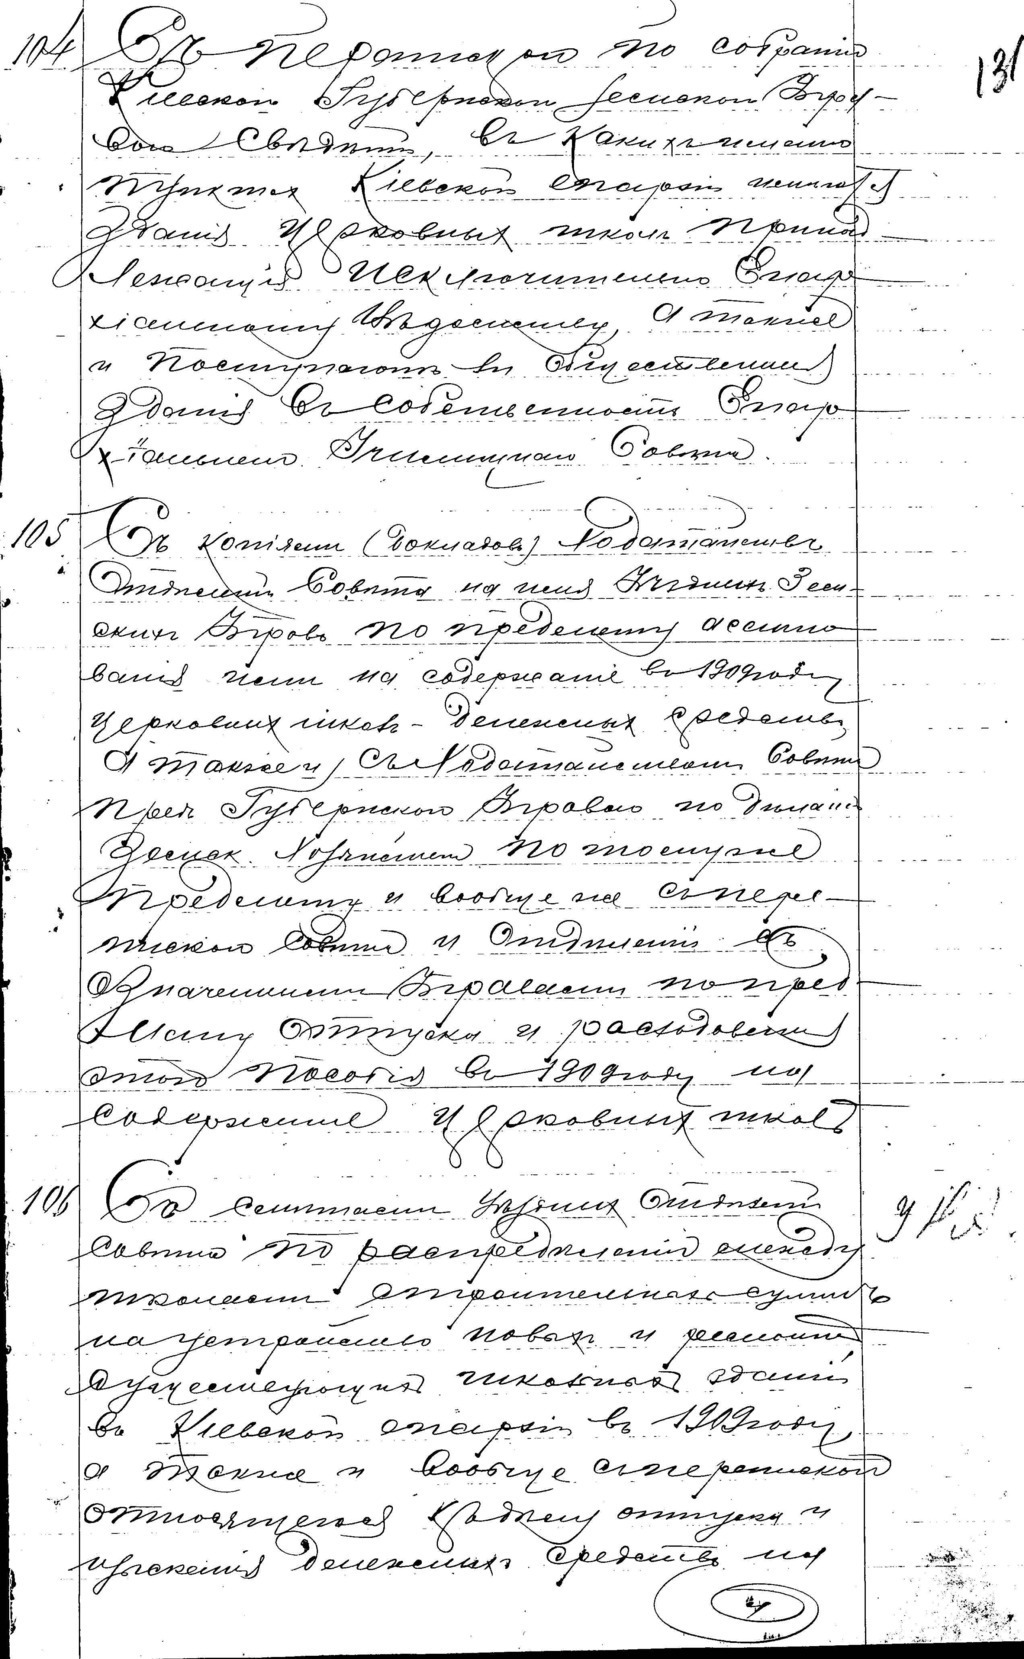 131
104 Съ перепиской по собранію
Кіевской Губернской Земской Упра-
вою Свѣдѣній, въ какихъ именно
пунктах Кіевской епархіи имѣются
Зданія Церковных школъ принад-
лежащія исключительно Епар-
хіальному Вѣдомству, а также
и поступают ли Общественныя
Зданія въ собственность Епар-
хіальнаго Училищнаго Совѣта.
105 Съ копіями (докладовъ) Ходатайствъ
Отдѣленій Совѣта на имя Уѣздныхъ Зем-
скихъ Управъ по предмету ассигно-
ванія ими на содержаніе въ 1909 году
Церковных школъ - денежных средствъ
а также и съ Ходатайствами Совѣта
пред Губернской Управою по дѣламъ
Земск. Хозяйства по тому же
предмету и вообще съ пере-
пиской Совѣта и Отдѣленій съ
Означенными Управами по пред-
мету Отпуска и расходованія
этого пособія въ 1909 году на
Содержаніе Церковных школъ
106 Со смѣтами Уѣздных Отдѣленій 9 Кіев.
Совѣта по распредѣленію между
школами строительных суммъ
на устройство новыхъ и ремонтъ
существующих школьных зданій
въ Кіевской епархіи въ 1909 году,
а также и вообще съ перепиской
относящейся къ дѣлу отпуска и
изысканія денежных средствъ на